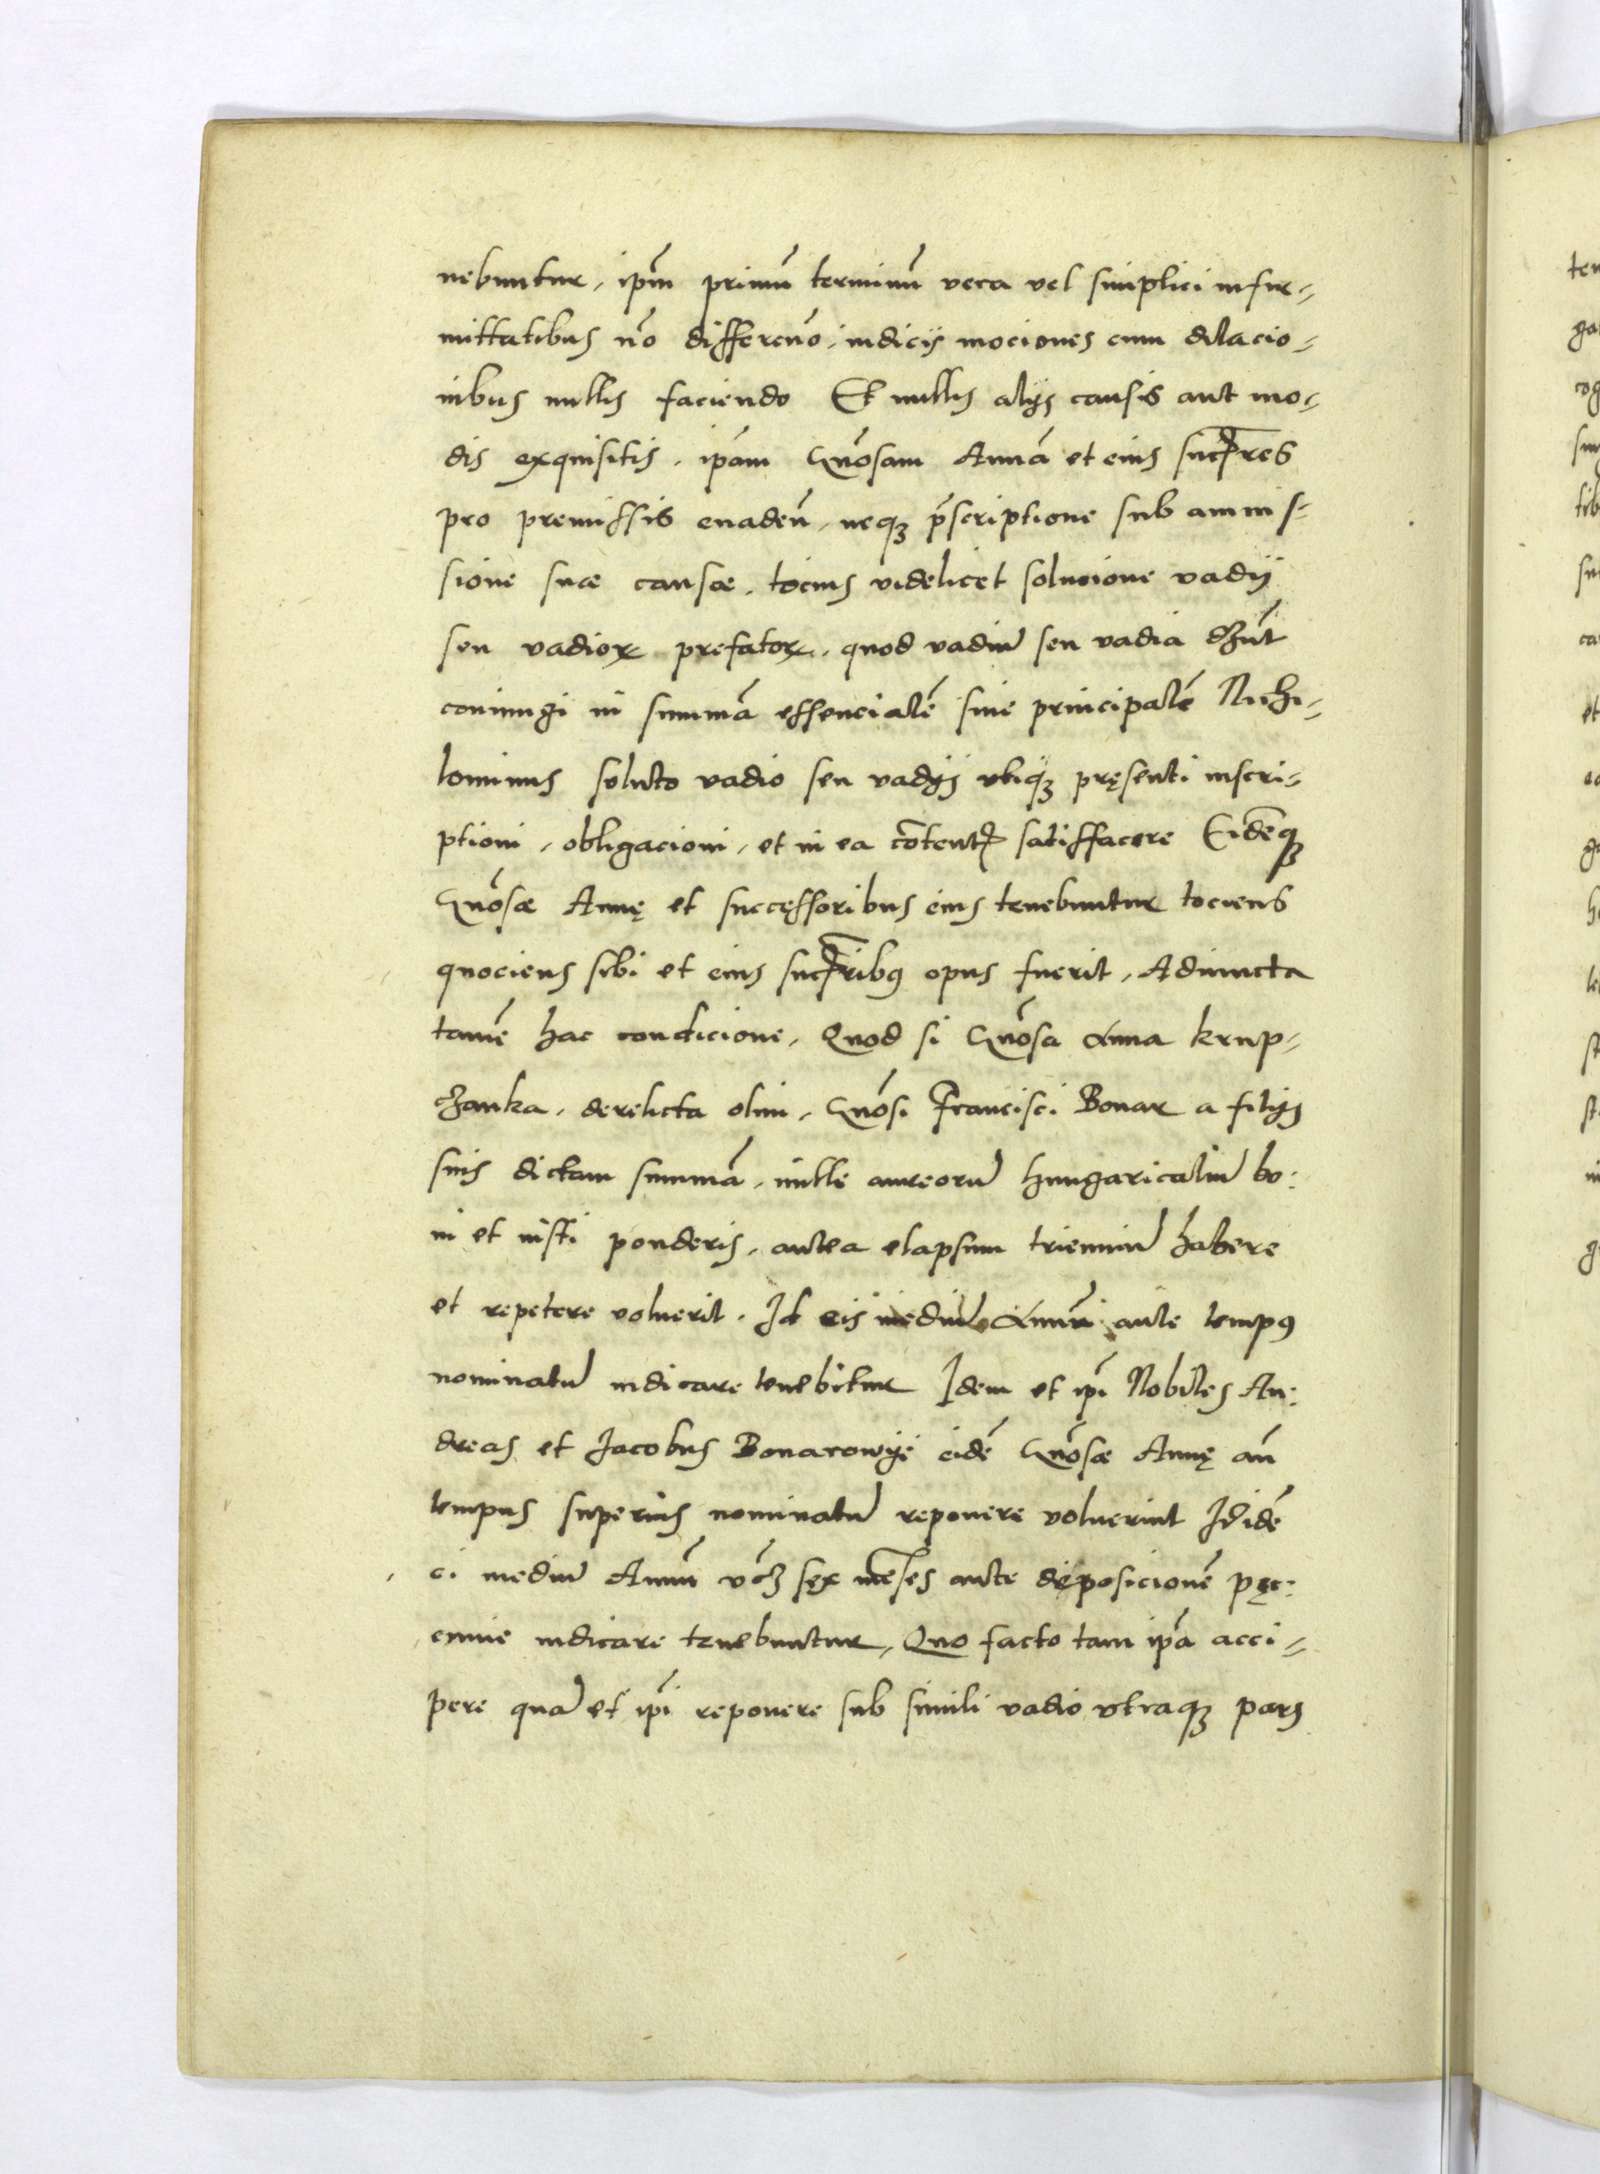 nebuntur, ipm̃ primũ terminũ vera vel simplici infir-
mittatibus nõ differendo, iudicÿs mociones cum dilacio-
nibus nullis faciendo Et nullis alÿs causis aut mo-
dis exquisitis, ipãm Gnõsam Annã et eius succ̃res
pro premissis euadeñ, neqȝ p̃scriptione sub amis-
sione suæ causæ, tocius videlicet solucione vadÿ
seu vadioꝝ prefatoꝝ, quod vadiũ seu vadia dñt
coniungi in summã essencialẽ siue principalẽ Nichi-
lominus soluto vadio seu vadÿs vtiqȝ pręsenti inscri-
ptioni, obligacioni, et in ea cõtentꝭ satisfacere Eidẽqȝ
Gnõsæ Annę et successoribus eius tenebuntur tociens
quociens sibi et eius succ̃ribꝰ opus fuerit, Adiuncta
tamẽ hac condicione, Quod si Gnõsa Anna krup-
czanka, derelicta olim, Gnõsi Francisci Bonar a filÿs
suis dictam summã, mille aureorũ hungaricaliũ bo:
ni et iusti ponderis, antea elapsum trienniũ habere
et repetere voluerit, Id eis mediũ Annũ ante tempꝰ
nominatũ indicare tenebitur Idem et ipĩ Nobiles An:
dreas et Jacobus Bonarowÿe eidẽ Gnõsæ Annę añ
tempus superius nominatũ reponere voluerint Id idẽ
ei mediũ Annũ vcȝ sex meñses ante deposicionẽ pęc:
cunie indicare tenebuntur, Quo facto tam ipã acci-
pere quã et ipĩ reponere sub simili vadio vtraqȝ pars